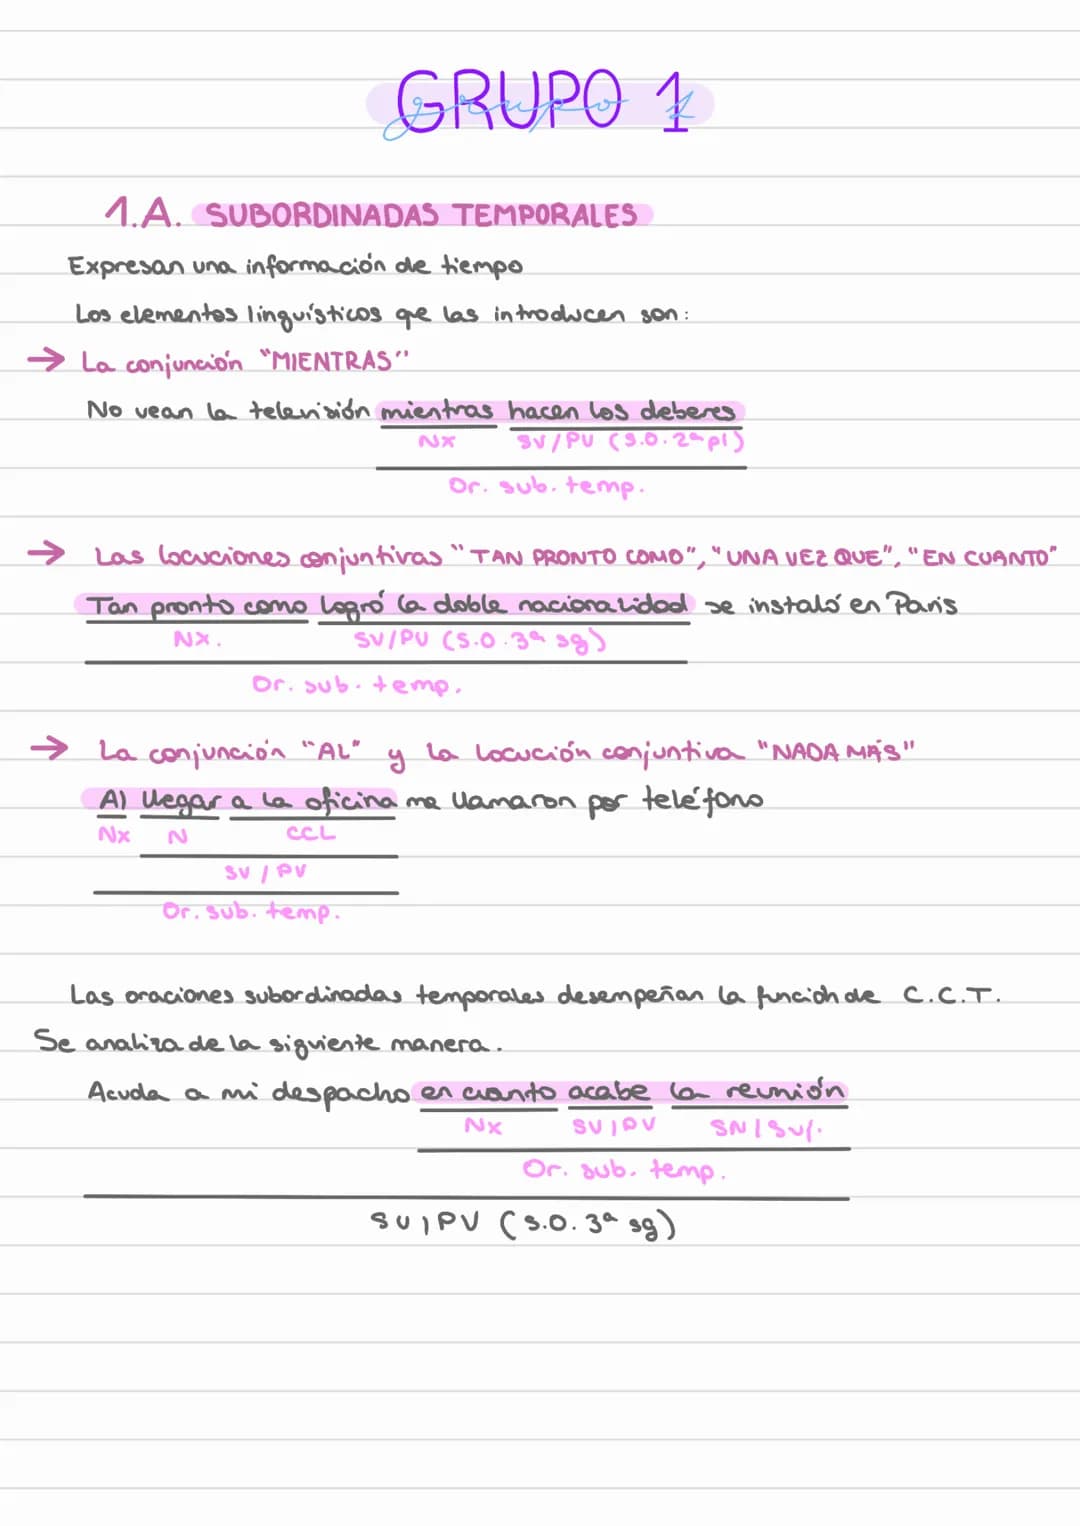 GRUPO 1
grupo 1
1.A. SUBORDINADAS TEMPORALES
Expresan una información de tiempo
Los elementos linguísticos que las introducen son:
→ La conjunción "MIENTRAS"
No vean la televisión mientras hacen los deberes
Nx SV/PV (S.O. 2ª pl)
Or. sub. temp.
→ Las locuciones conjuntivas "TAN PRONTO COMO", "UNA VEZ QUE", "EN CUANTO"
Tan pronto como logró la doble nacionalidad se instaló en París
Nx. SV/PV (S.O. 3ª sg)
Or. sub. temp.
→ La conjunción "AL" y la locución conjuntiva "NADA MÁS"
Al llegar a la oficina me llamaron por teléfono
Nx N CCL
SV / PV
Or. sub. temp.
Las oraciones subordinadas temporales desempeñan la función de C.C.T.
Se analiza de la siguiente manera.
Acuda a mi despacho en cuanto acabe la reunión
Nx SV/PV SN/Suj.
Or. sub. temp.
SV/PV (S.O. 3ª sg)